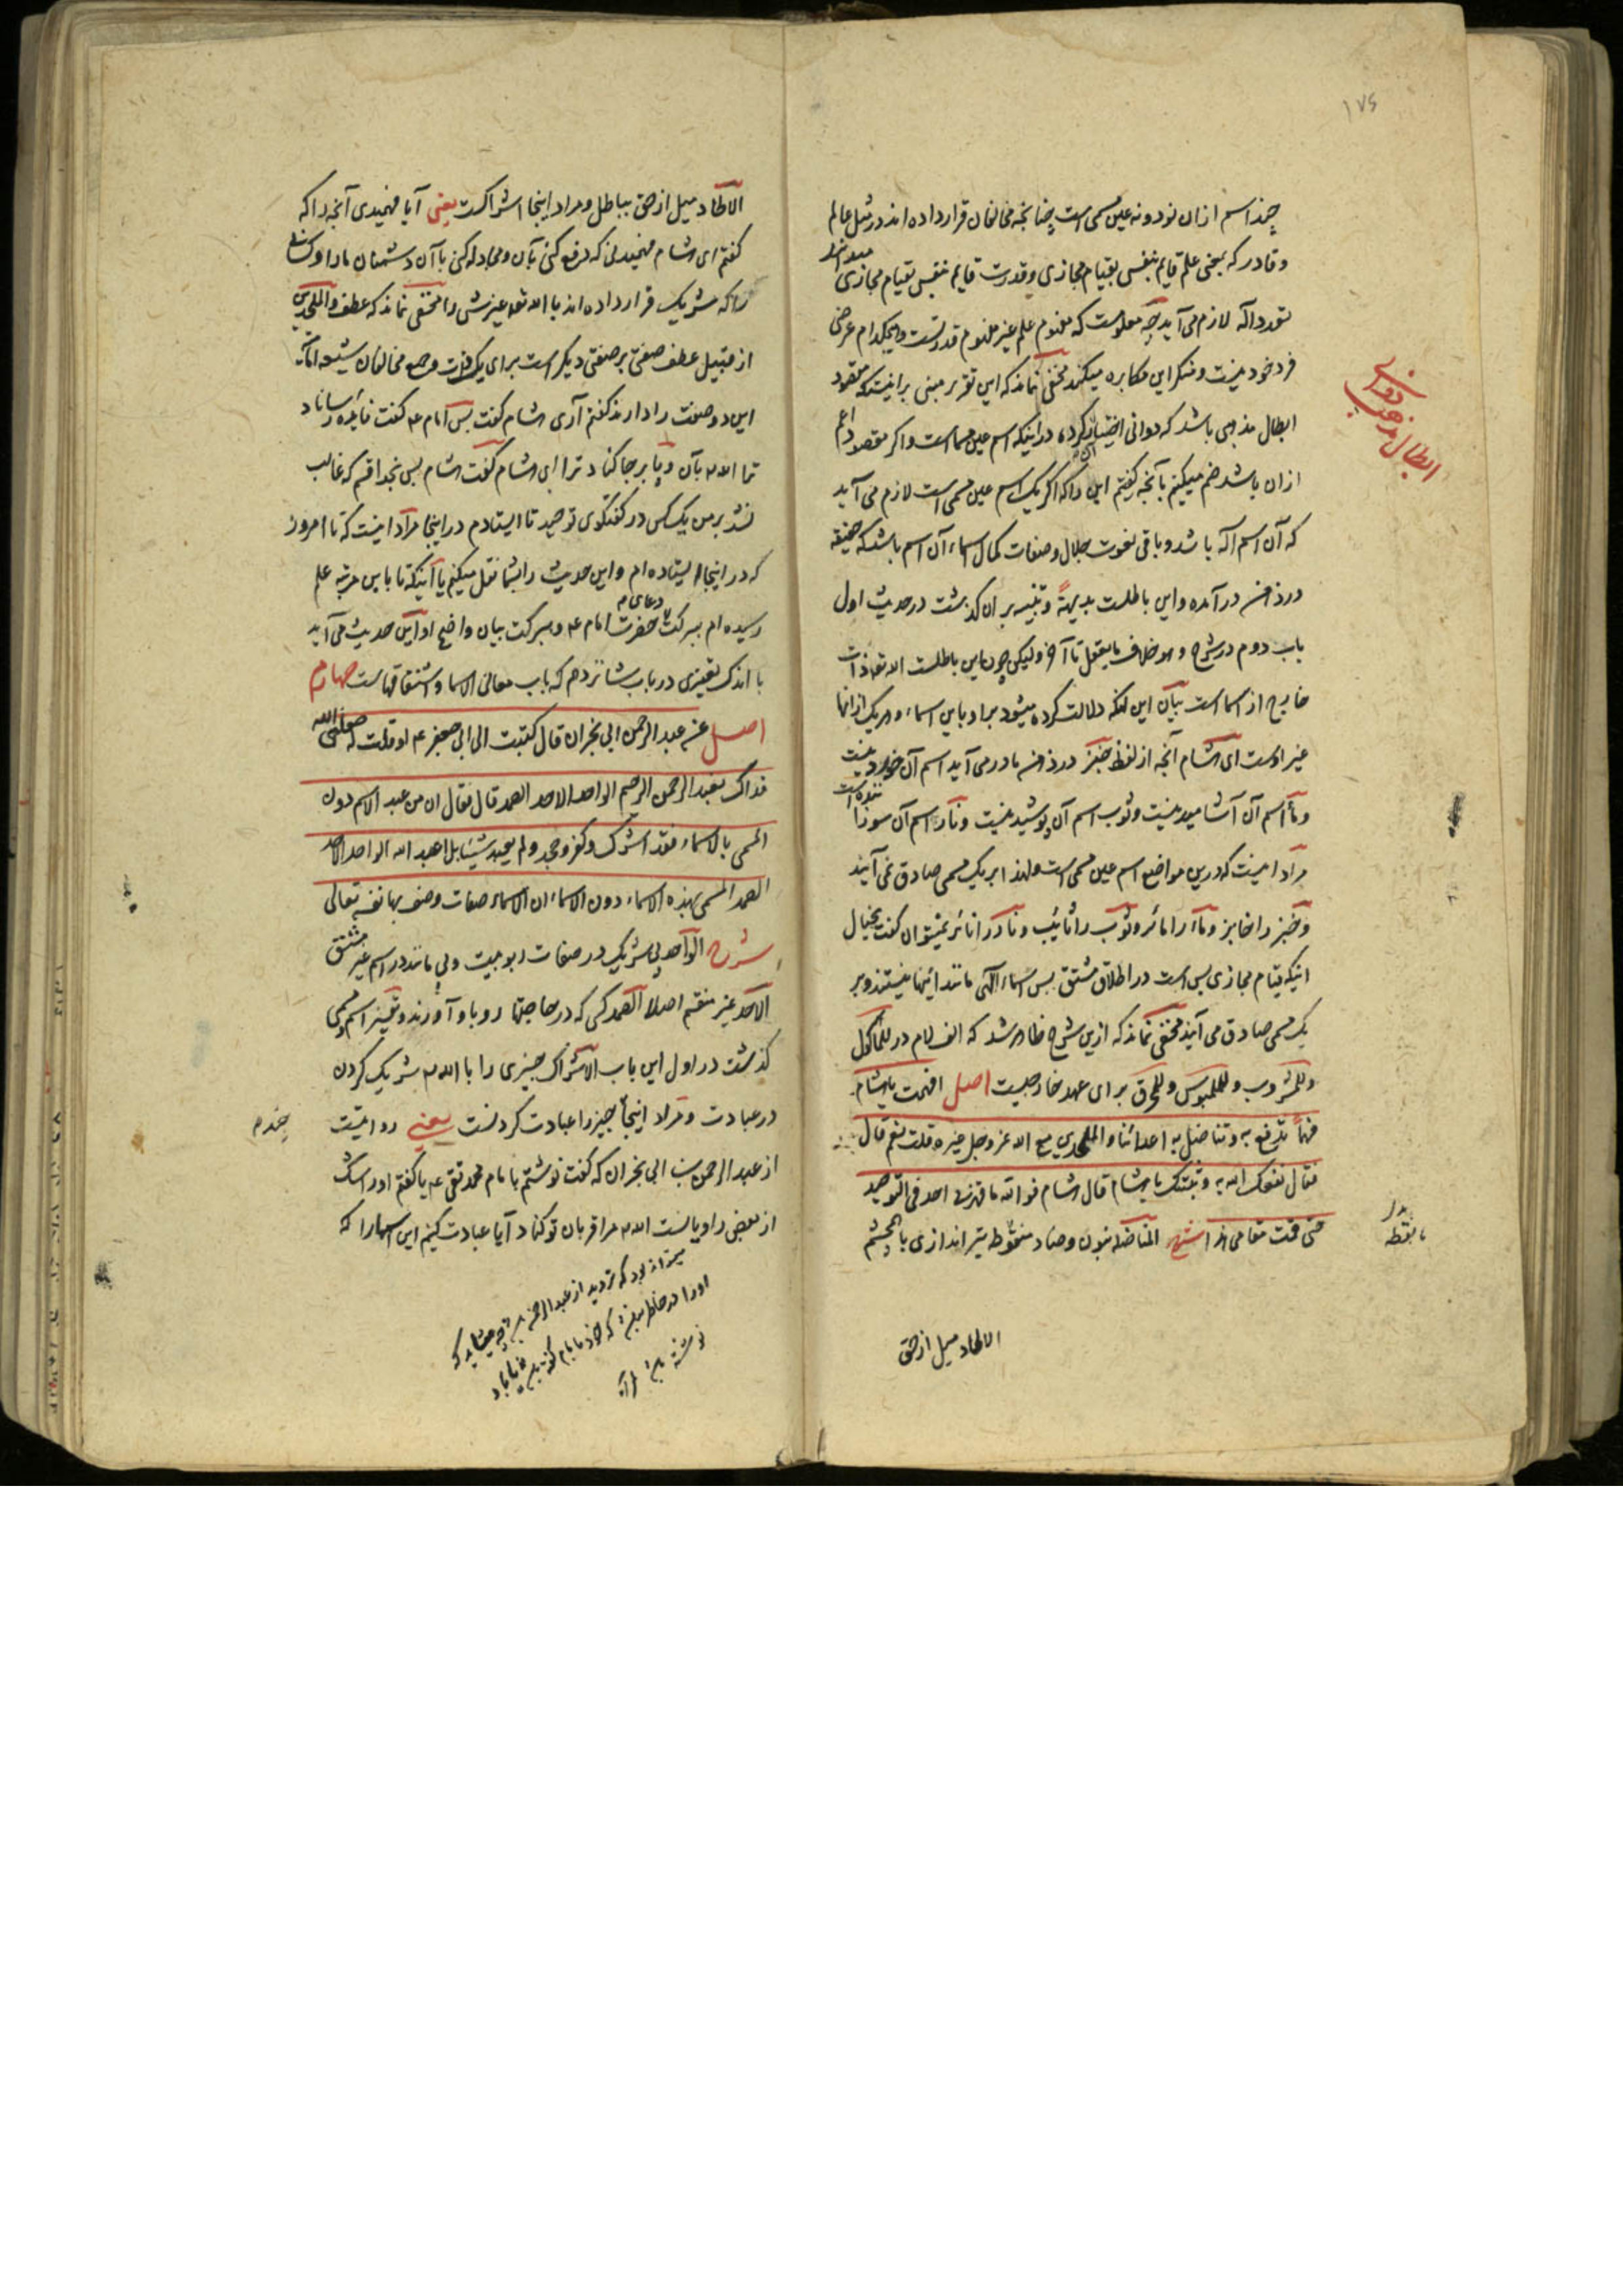 ۱۷۶
چند اسم ازان نود و نه عین مسمی است چنانچه مخالفان قرار داده اند در مثل عالم
وقادر که بمعنی علم قایم بنفس بقیام مجازی وقدرت قایم بنفس بقیام مجازی میدانند
تعدد اله لازم می آید چه معلومست که مفهوم علم غیر مفهوم قدرتست وهیچکدام عرضی
فرد خود نیست ومنکر این مکابره میکند مخفی نماند که این تقریر مبنی بر اینست که مقصود
ابطال مذهبی باشد که دوانی اختیار کرده در اینکه اسم عین مسماست واکر مقصود اعم
ابطال مذهب دوانی
ازان باشد ضم میکنیم بآنچه کفتیم این را که اکر یک اسم عین مسمی است لازم می آید
که آن اسم اله باشد وباقی نعوت جلال وصفات کمال اسماء آن اسم باشد که حقیقة
در ذهن در آمده واین باطلست بدیهةً وتنبیه بر ان کذشت در حدیث اول
باب دوم در شرح وهو خلاف ما یعقل تا آخر ولیکن چون این باطلست الله تعالی ذات
خارج از اسما است بیان این آنکه دلالت کرده میشود بر او باین اسماء وهر یک ازانها
غیر اوست ای هشام آنچه از لفظ خبز در ذهن ما در می آید اسم آن خوردنیست
وماء اسم آن آشامیدنیست وثوب اسم آن پوشیدنیست ونار اسم آن سوزاننده است
مراد اینست که درین مواضع اسم عین مسمی است ولهذا بر یک مسمی صادق نمی آیند
وخبز را خابز وماء را مائر وثوب را ثائب ونار را نائر نمیتوان کفت بخیال
اینکه قیام مجازی بس است در اطلاق مشتق پس اسماء الهی مانند اینها نیستند وبر
یک مسمی صادق می آیند مخفی نماند که ازین شرح ظاهر شد که الف لام در للمأکول
وللمشروب وللملبوس وللمحرق برای عهد خارجیست اصل افهمت یا هشام
فهماً تدفع به وتناضل به اعدائنا والملحدین مع الله عز وجل غیره قلت نعم قال
فقال نفعک الله به وثبتک یا هشام قال هشام فوالله ما قهرنی احد فی التوحید
حتی قمت مقامی هذا شرح المناضلة بنون وضاد منقوطه تیر اندازی با خشم
بانقطه
الالحاد میل از حق
الالحاد میل از حق بباطل ومراد اینجا اشراکست یعنی آیا فهمیدی آنچه را که
کفتم ای هشام فهمیدنی که دفع کنی بآن ومجادله کنی بآن دشمنان ما را وکسانی
را که شریک قرار داده اند با الله تعالی غیرش را مخفی نماند که عطف والملحدین
از قبیل عطف صفتی بر صفتی دیکر است برای یک ذات وجمیع مخالفان شیعه امامیه
این دو صفت را دارند کفتم آری هشام کفت پس امام ع کفت فائده رساناد
ترا الله بآن وپا بر جا کناد ترا ای هشام کفت هشام پس بخدا قسم که غالب
نشد بر من یک کس در کفتکوی توحید تا ایستادم در اینجا مراد اینست که تا امروز
که در اینجا ایستاده ام واین حدیث را بشما نقل میکنم یا اینکه تا باین مرتبه علم
رسیده ام ببرکت دعای حضرت امام ع وببرکت بیان واضح او این حدیث می آید
با اندک تغییری در باب شانزدهم که باب معانی الاسما واشتقاقها است چهارم
اصل عنه عبد الرحمن ابی نجران قال کتبت الی ابی جعفر ع او قلت له جعلنی الله
فداک نعبد الرحمن الرحیم الواحد الاحد الصمد قال فقال ان من عبد الاسم دون
المسمی بالاسماء فقد اشرک وکفر وجحد ولم یعبد شیئا بل اعبد الله الواحد الاحد
الصمد المسمی بهذه الاسماء دون الاسماء ان الاسماء صفات وصف بها نفسه تعالی
شرح الواحد بی شریک در صفات ربوبیت وبی مانند در اسم غیر مشتق
الاحد غیر منقسم اصلا الصمد کسی که در حاجتها رو باو آورند وتفسیر اسم ومسمی
کذشت در اول این باب الاشراک چیزی را با الله شریک کردن
در عبادت ومراد اینجا چیز را عبادت کردنست یعنی روایتست
از عبد الرحمن بن ابی نجران که کفت نوشتم بامام محمد تقی ع یا کفتم او را شک
از بعضی راویانست الله مرا قربان تو کناد آیا عبادت کنیم این اسمها را که